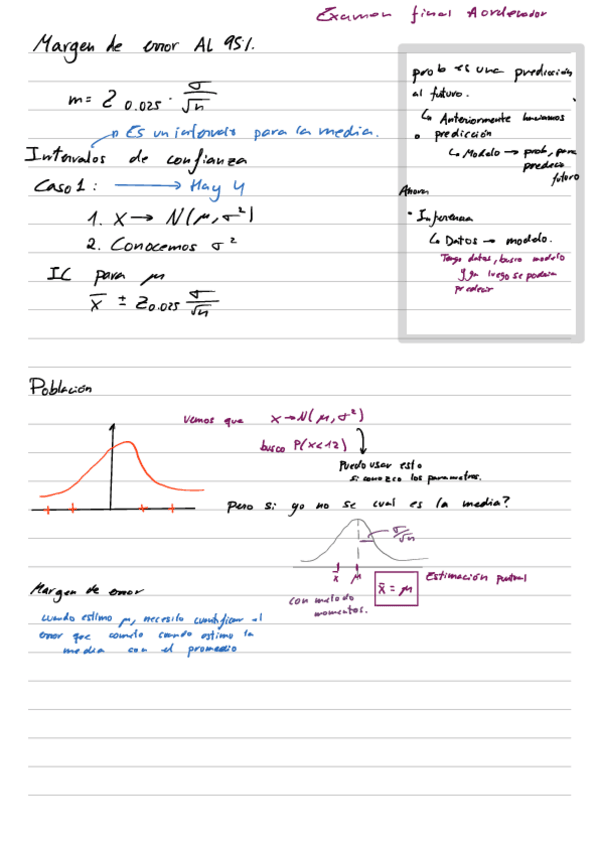 Examen final Aordenador
Margen de error AL 95%.
m = Z 0.025 · σ/√n
→ Es un intervalo para la media.
Intervalos de confianza
Caso 1: → Hay 4
1. X → N(μ, σ²)
2. Conocemos σ²
IC para μ
x̄ ± Z0.025 σ/√n
prob es una predicción
al futuro.
↳ Anteriormente haciamos
predicción
↳ Modelo → prob, para
predecir
futuro
Ahora
• Inferencia
↳ Datos → modelo.
Tengo datos, busco modelo
y ya luego se podria
predecir
Población
Vemos que x → N(μ, σ²)
busco P(x<12)
Puedo usar esto
si conozco los parametros.
Pero si yo no se cual es la media?
σ/√n
x̄ μ
x̄ = μ
Estimación puntual
con metodo
momentos.
Margen de error
cuando estimo μ, necesito cuantificar el
error que cometo cuando estimo la
media con el promedio